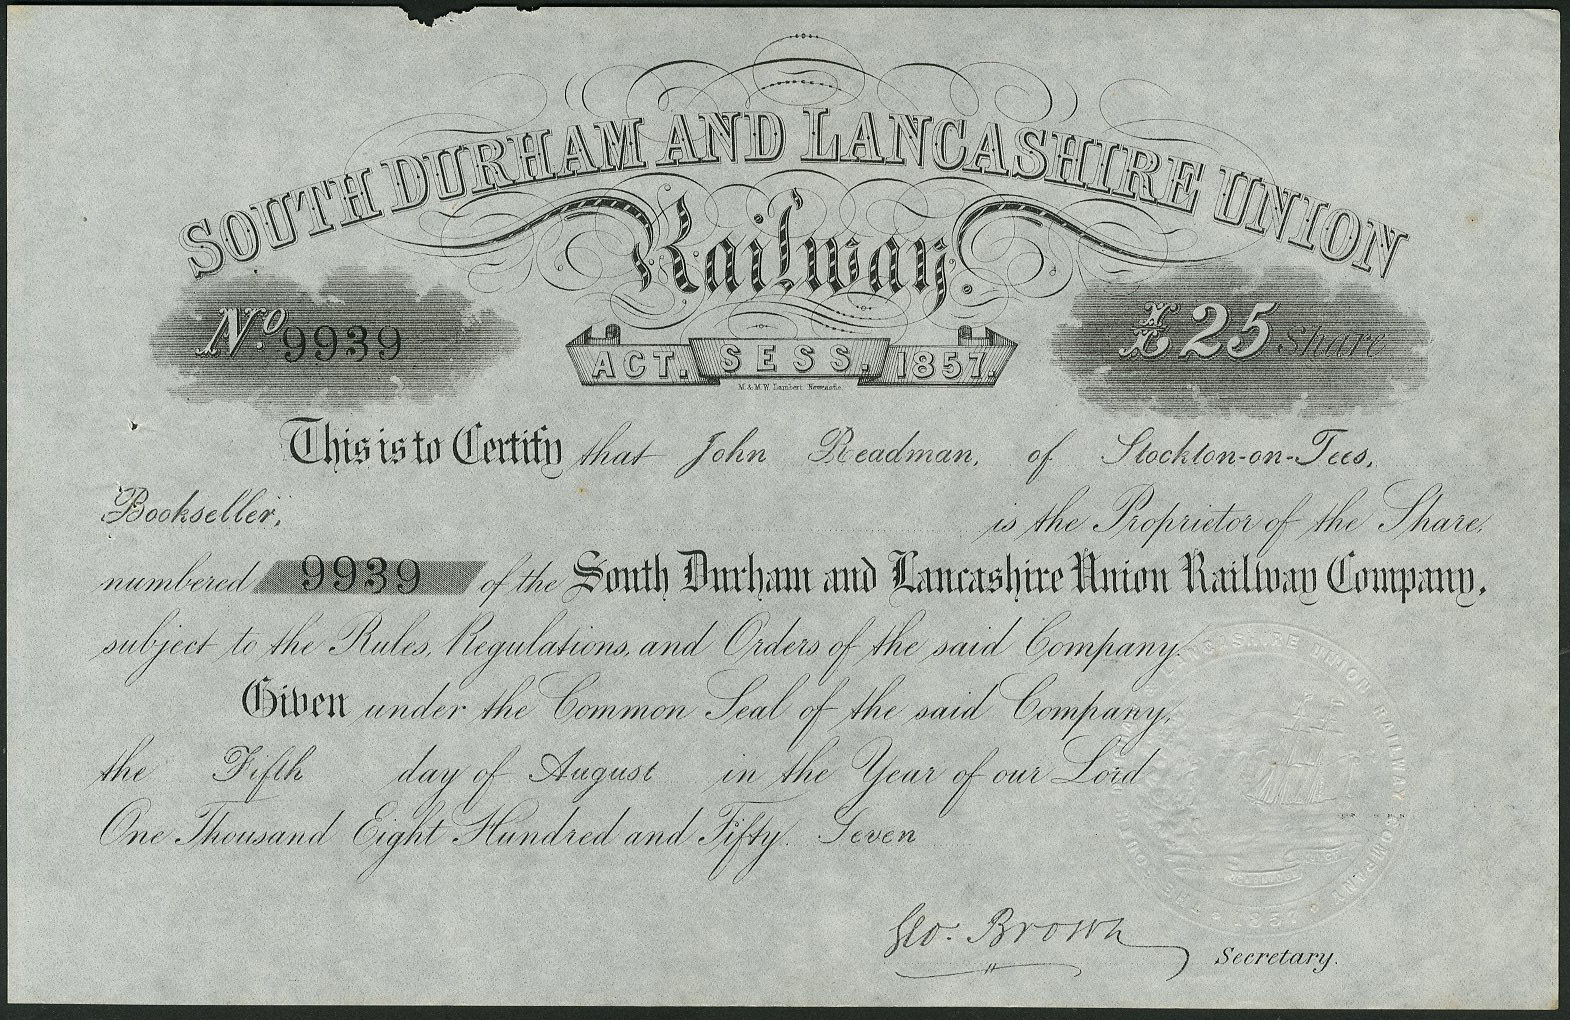 SOUTH DURHAM AND LANCASHIRE UNION
Railway.
No. 9939
£25 Share
ACT. SESS. 1857.
M. & M.W. Lambert. Newcastle.
This is to Certify that John Readman, of Stockton-on-Tees,
Bookseller, is the Proprietor of the Share,
numbered 9939 of the South Durham and Lancashire Union Railway Company,
subject to the Rules, Regulations, and Orders of the said Company.
Given under the Common Seal of the said Company,
the Fifth day of August in the Year of our Lord
One Thousand Eight Hundred and Fifty Seven
Geo. Brown Secretary.
THE SOUTH DURHAM & LANCASHIRE UNION RAILWAY COMPANY
1857